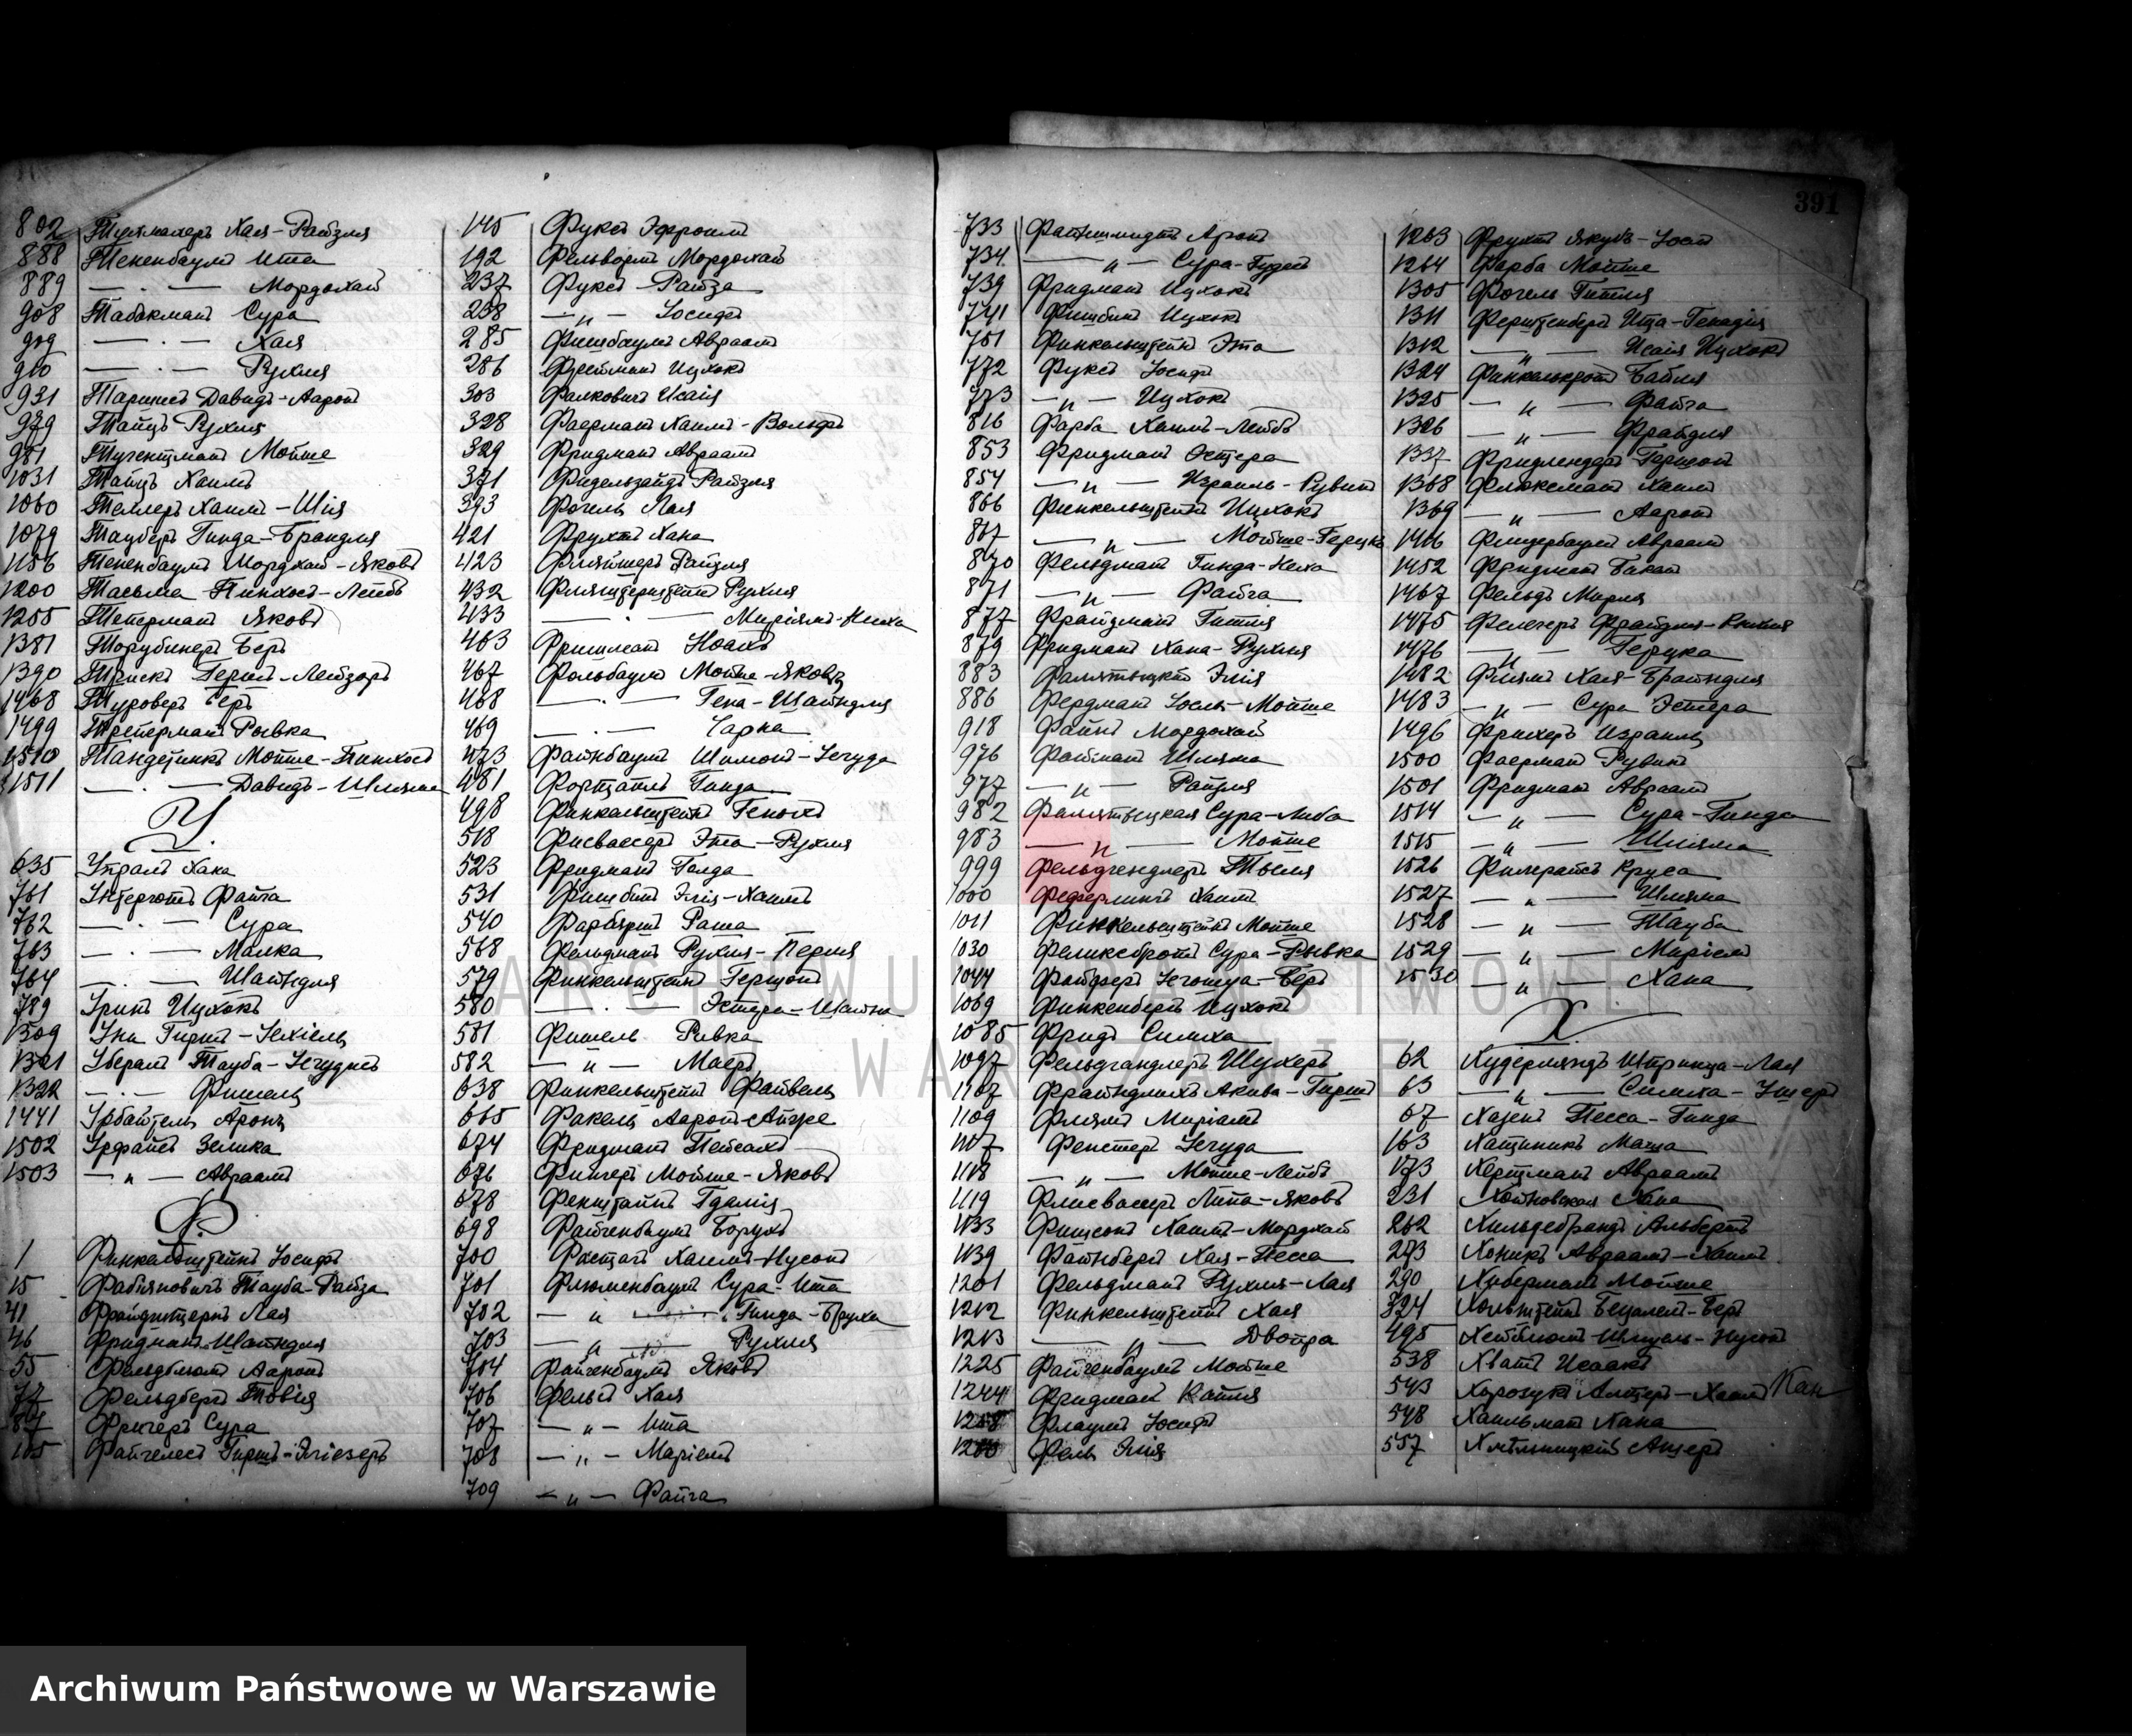 391
802 Тухмахеръ Хая-Райзля
888 Тененбаумъ Ита
889 — . — Мордохай
908 Табакманъ Сура
909 — . — Хая
910 — . — Рухля
931 Давидъ-Ааронъ
939 Тайцъ Рухля
981 Мойше
1031 Тайцъ Хаимъ
1060 Теллеръ Хаимъ-Шія
1079 Тауберъ Гинда-Брандля
1156 Тененбаумъ Мордхай-Яковъ
1200 Тасьма Пинхосъ-Лейбъ
1255 Теперманъ Яковъ
1381 Торубинеръ Беръ
1390 Гершъ-Лейзоръ
1468 Туроверъ Беръ
1499 Треперманъ Ривка
1510 Мойше-Пинхосъ
1511 — . — Давидъ-Шляма
У.
635 Хана
761 Файга
762 — . — Сура
763 — . — Малка
764 — . — Шайндля
789 Ицхокъ
1309 Гиршъ-Іехіель
1321 Убералъ Тауба-Іегудисъ
1322 — . — Фишель
1441 Аронъ
1502 Урфайсъ Зелика
1503 — „ — Авраамъ
Ф.
1 Финкельштейнъ Іосифъ
15 Фабіяновичъ Тауба-Райза
41 Лая
46 Фридманъ Шайндля
55 Фельдблюмъ Ааронъ
77 Фельдбергъ Товія
87 Сура
105 Файгелесъ Гиршъ-Эліезеръ
145 Фуксъ Эфроимъ
192 Мордохай
237 Фуксъ Райза
238 — „ — Іосифъ
285 Фишбаумъ Авраамъ
286 Фрейманъ Ицхокъ
303 Фалковичъ Исаія
328 Фаерманъ Хаимъ-Вольфъ
329 Фридманъ Авраамъ
371 Фидельзайдъ Райзля
393 Фогель Лая
421 Фрухтъ Хана
423 Фляйшеръ Райзля
432 Рухля
433 — . — Миріямъ-Ниха
463 Фришманъ Ноахъ
467 Фольбаумъ Мойше-Яковъ
468 — . — Гена-Шайндля
469 — . — Сарка
473 Файнбаумъ Шимонъ-Іегуда
481 Гинда
498 Финкельштейнъ Генохъ
518 Фисвассеръ Эта-Рухля
523 Фридманъ Голда
531 Фишбинъ Элія-Хаимъ
540 Раша
568 Фельдманъ Рухля-Перля
579 Финкельштейнъ Гершонъ
580 — . — Эстера-Шайна
581 Фишель Ривка
582 — „ — Маеръ
638 Финкельштейнъ Файвель
665 Факель
674 Фридманъ Пейсахъ
676 Фишеръ Мойше-Яковъ
678 Гдалія
698 Файгенбаумъ Борухъ
700 Хаимъ-Нусонъ
701 Флюменбаумъ Сура-Ита
702 — „ — Гинда-Бруха
703 — „ — Рухля
704 Файгенбаумъ Яковъ
706 Фельсъ Хая
707 — „ — Ита
708 — „ — Маріемъ
709 — „ — Файга
733 Файншмидтъ Аронъ
734 — „ — Сура-Гудесъ
739 Фридманъ Ицхокъ
741 Фишбинъ Ицхокъ
751 Финкельштейнъ Эта
772 Фуксъ Іосифъ
773 — „ — Ицхокъ
816 Фарба Хаимъ-Лейбъ
853 Фридманъ Эстера
854 — „ — Израиль-Рувинъ
866 Финкельштейнъ Ицхокъ
867 — „ — Мойше-Герцкъ
870 Фельдманъ Гинда-Неха
871 — „ — Файга
877 Фрайдманъ Гитля
879 Фридманъ Хана-Рухля
883 Фалятыцкій Элія
886 Фердманъ Іосль-Мойше
918 Файнъ Мордохай
976 Фойгманъ Шляма
977 — „ — Райзля
982 Фалятыцкая Сура-Либа
983 — „ — Мойше
999 Фельдгендлеръ Тыля
1000 Феферлингъ Хаимъ
1011 Финкельштейнъ Мойше
1030 Феликсбротъ Сура-Рывка
1044 Файферъ Іегошуа-Беръ
1069 Финкенбергъ Ицхокъ
1085 Фридъ Симха
1097 Фельдгандлеръ Шухеръ
1107 Фрайндлихъ Акива-Гиршъ
1109 Флямъ Миріамъ
1117 Фенстеръ Іегуда
1118 — „ — Мойше-Лейбъ
1119 Флисвассеръ Липа-Яковъ
1133 Фишсонъ Хаимъ-Мордхай
1139 Файнбергъ Хая-Песса
1201 Фельдманъ Рухля-Лая
1212 Финкельштейнъ Хая
1213 — „ — Двойра
1225 Файгенбаумъ Мойше
1244 Фридманъ Кайля
1258 Флаумъ Іосифъ
Фель Элія
1263 Фрухтъ Якубъ-Іосп
1264 Фарба Мойше
1305 Фогель Гитля
1311 Ферштенбергъ Ита-Генадія
1312 — „ — Исаія Ицхокъ
1324 Финкелькротъ Байля
1325 — „ — Файга
1326 — „ — Фрайдля
1337 Фридлендеръ Гершонъ
1368 Флюксманъ Хаимъ
1369 — „ — Ааронъ
1416 Флидербаумъ Авраамъ
1452 Фридманъ
1467 Фельдъ Мирля
1475 Фелечеръ
1476 — „ — Герцка
1482 Флямъ Хая-Брайндля
1483 — „ — Сура Эстера
1496 Фришеръ Израиль
1500 Фаерманъ Рувинъ
1501 Фридманъ Авраамъ
1514 — „ — Сура-Гинда
1515 — „ — Шляма
1526 Круса
1527 — „ — Шляма
1528 — „ — Тауба
1529 — „ — Маріемъ
1530 — „ — Хана
Х.
62 Худерляндъ Шпринца-Лая
63 — „ — Симха-Ушеръ
67 Хазенъ Песса-Гинда
163 Хащиникъ Маша
173 Херцманъ Авраамъ
231 Хойновская Хана
262 Хильдебрандъ Альбертъ
273 Хоникъ Авраамъ-Хаимъ
290 Хиберманъ Мойше
324 Хольштейнъ Бецалель-Беръ
495 Нусонъ
538 Хватъ Исаакъ
543 Хаимъ
548 Хаильманъ Хана
557 Хмѣльницкій Ашеръ
ARCHIWUM PAŃSTWOWE
W WARSZAWIE
Archiwum Państwowe w Warszawie